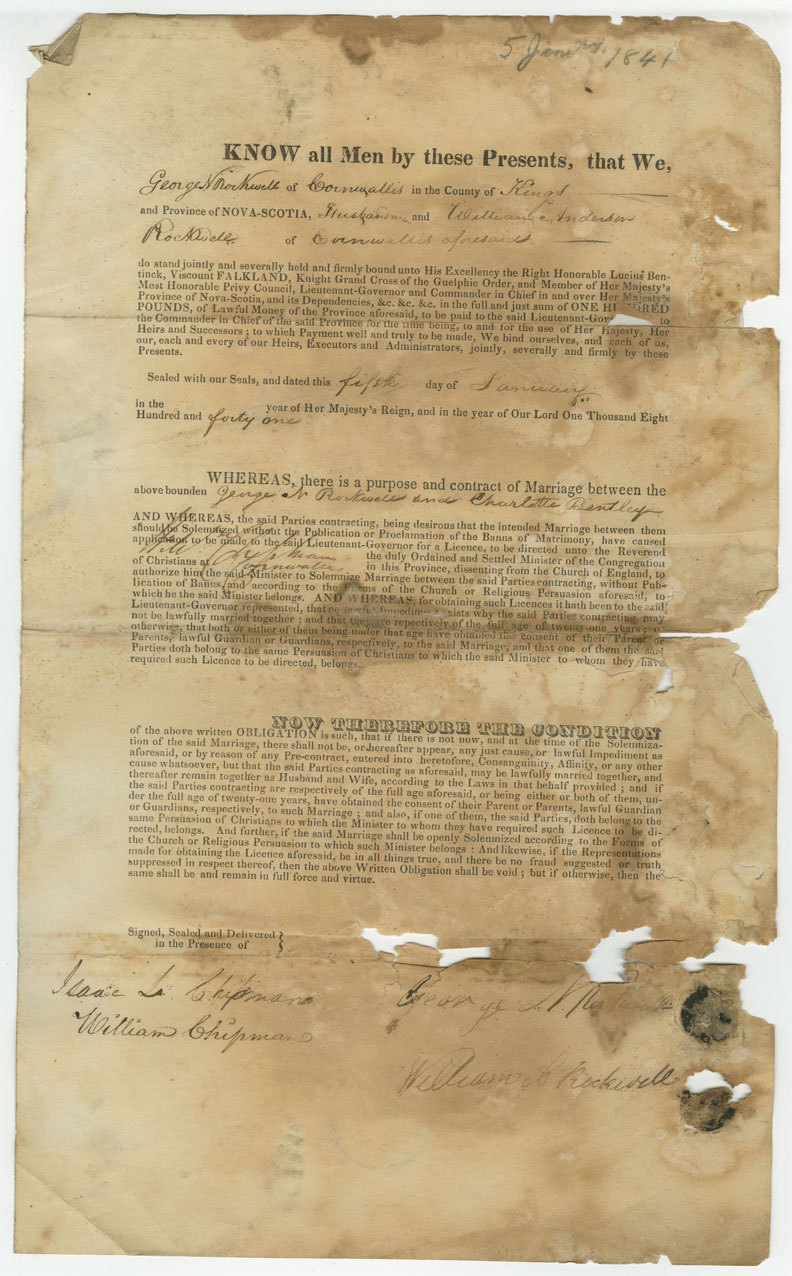 5 Jany. 1841
KNOW all Men by these Presents, that We,
George N Rockwell of Cornwallis in the County of Kings
and Province of NOVA-SCOTIA, and William Anderson
Rockwell of Cornwallis aforesaid
do stand jointly and severally held and firmly bound unto His Excellency the Right Honorable Lucius Ben-
tinck, Viscount FALKLAND, Knight Grand Cross of the Guelphic Order, and Member of Her Majesty's
Most Honorable Privy Council, Lieutenant-Governor and Commander in Chief in and over Her Majesty's
Province of Nova-Scotia, and its Dependencies, &c. &c. &c. in the full and just sum of ONE HUNDRED
POUNDS, of Lawful Money of the Province aforesaid, to be paid to the said Lieutenant-Gov to
the Commander in Chief of the said Province for the time being, to and for the use of Her Majesty, Her
Heirs and Successors; to which Payment well and truly to be made, We bind ourselves, and each of us,
our, each and every of our Heirs, Executors and Administrators, jointly, severally and firmly by these
Presents.
Sealed with our Seals, and dated this fifth day of January
in the year of Her Majesty's Reign, and in the year of Our Lord One Thousand Eight
Hundred and forty one
WHEREAS, there is a purpose and contract of Marriage between the
above bounden George N Rockwell and Charlotte Bentley
AND WHEREAS, the said Parties contracting, being desirous that the intended Marriage between them
should be Solemnized without the Publication or Proclamation of the Banns of Matrimony, have caused
application to be made to the said Lieutenant-Governor for a Licence, to be directed unto the Reverend
Wm Chipman the duly Ordained and Settled Minister of the Congregation
of Christians at Cornwallis in this Province, dissenting from the Church of England, to
authorize him the said Minister to Solemnize Marriage between the said Parties contracting, without Pub-
lication of Banns, and according to the Forms of the Church or Religious Persuasion aforesaid, to
which he the said Minister belongs. AND WHEREAS, for obtaining such Licences it hath been to the said
Lieutenant-Governor represented, that no lawful Impediment exists why the said Parties contracting may
not be lawfully married together; and that they are repectively of the full age of twenty-one years; or
otherwise, that both or either of them being under that age have obtained the consent of their Parent or
Parents, lawful Guardian or Guardians, respectively, to the said Marriage, and that one of them the said
Parties doth belong to the same Persuasion of Christians to which the said Minister to whom they have
required such Licence to be directed, belongs.
NOW THEREFORE THE CONDITION
of the above written OBLIGATION is such, that if there is not now, and at the time of the Solemniza-
tion of the said Marriage, there shall not be, or hereafter appear, any just cause, or lawful Impediment as
aforesaid, or by reason of any Pre-contract, entered into heretofore, Consanguinity, Affinity, or any other
cause whatsoever, but that the said Parties contracting as aforesaid, may be lawfully married together, and
thereafter remain together as Husband and Wife, according to the Laws in that behalf provided; and if
the said Parties contracting are respectively of the full age aforesaid, or being either or both of them, un-
der the full age of twenty-one years, have obtained the consent of their Parent or Parents, lawful Guardian
or Guardians, respectively, to such Marriage; and also, if one of them, the said Parties, doth belong to the
same Persuasion of Christians to which the Minister to whom they have required such Licence to be di-
rected, belongs. And further, if the said Marriage shall be openly Solemnized according to the Forms of
the Church or Religious Persuasion to which such Minister belongs: And likewise, if the Representations
made for obtaining the Licence aforesaid, be in all things true, and there be no fraud suggested or truth
suppressed in respect thereof, then the above Written Obligation shall be void; but if otherwise, then the
same shall be and remain in full force and virtue.
Signed, Sealed and Delivered
in the Presence of
Isaac L. Chipman George N Rockwell
William Chipman
William A Rockwell